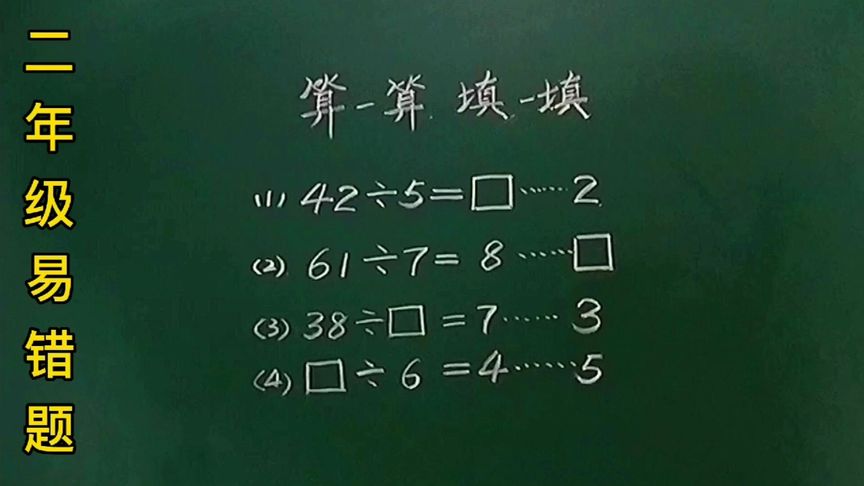 二年级易错题
算一算 填一填
(1) 42÷5=□……2
(2) 61÷7=8……□
(3) 38÷□=7……3
(4) □÷6=4……5